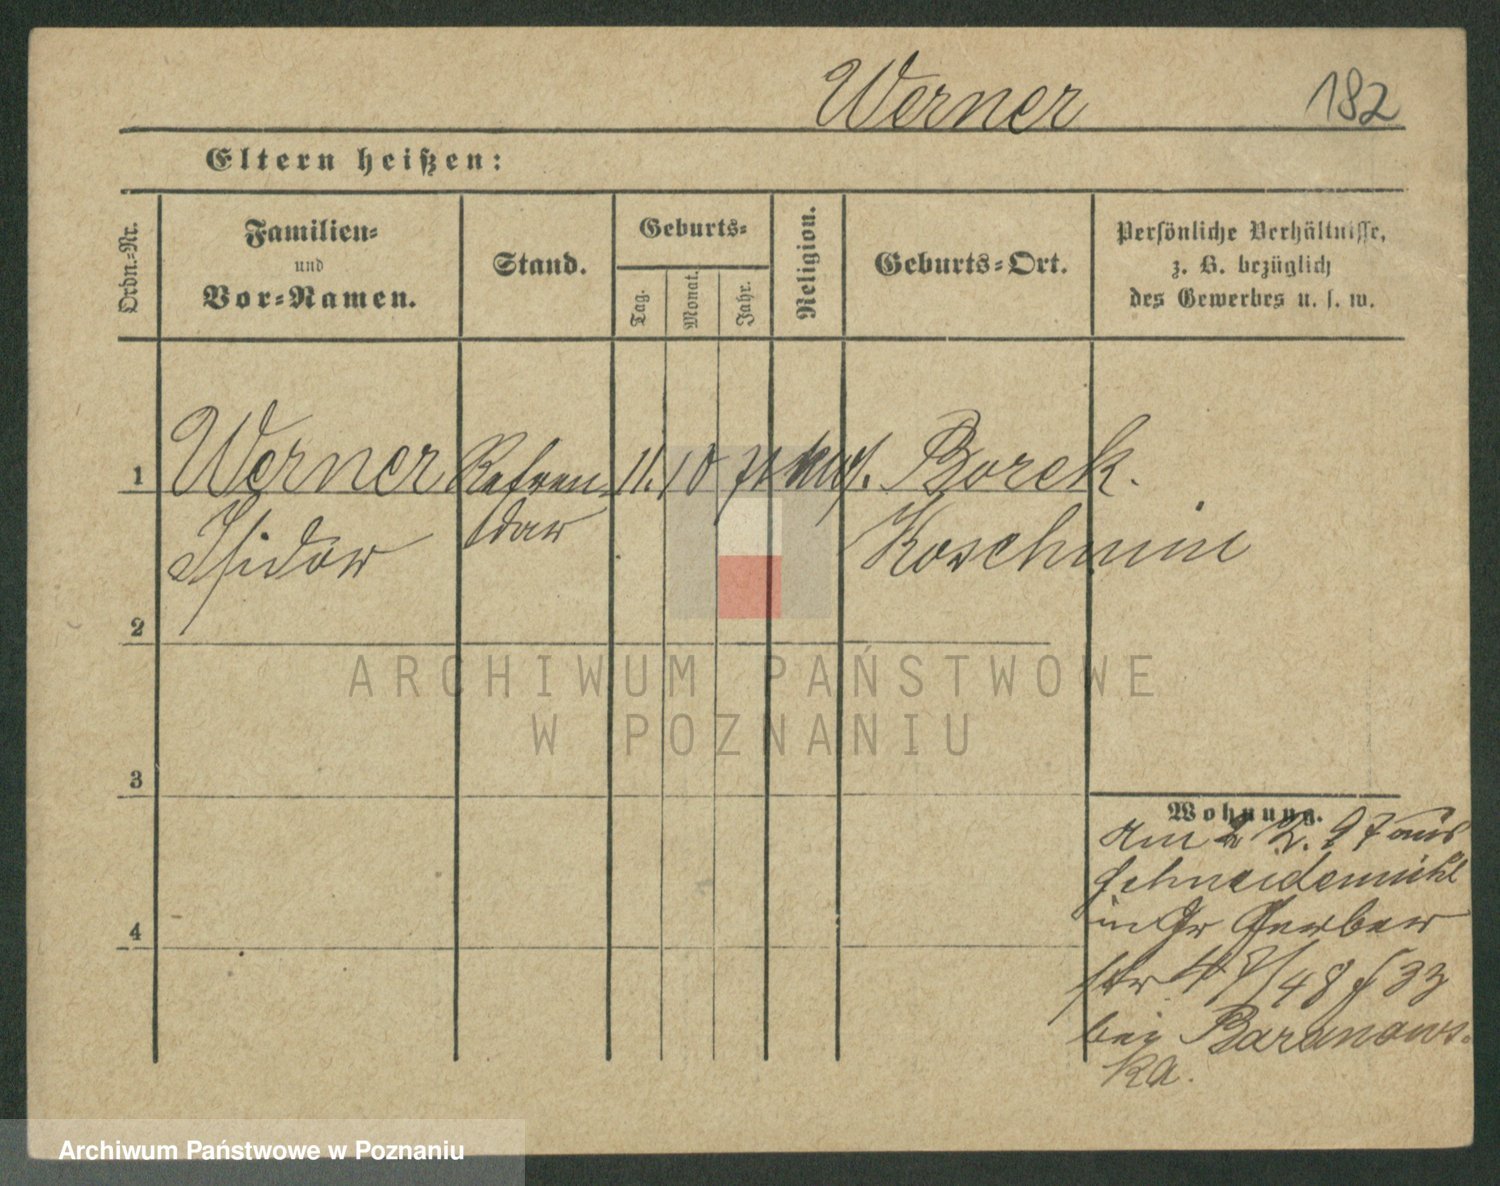 Werner 182
Eltern heißen:
Ordn.-Nr.
Familien-
und
Vor-Namen.
Stand.
Geburts-
Tag.
Monat.
Jahr.
Religion.
Geburts-Ort.
Persönliche Verhältnisse,
z. B. bezüglich
des Gewerbes u. s. w.
1 Werner Referen- 11. 10 71 Borek.
Isidor dar Koschmin
2
3
4
Wohnung.
Am 2 2. 97 aus
Schneidemühl
in Gr Gerber
str 47/48 f 33
bei Baranows-
ka.
ARCHIWUM PAŃSTWOWE
W POZNANIU
Archiwum Państwowe w Poznaniu